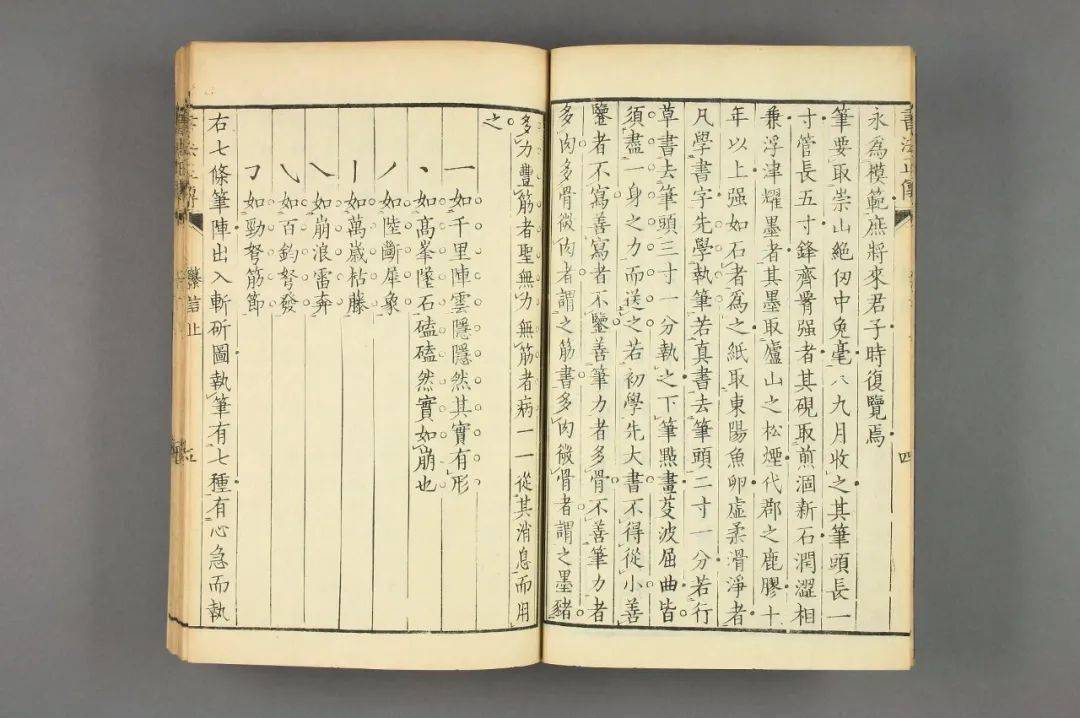 書法正傳
四
永為模範庶將來君子時復覽焉
筆要取崇山絕仞中兔毫八九月收之其筆頭長一
寸管長五寸鋒齊腰强者其硯取煎涸新石潤澀相
兼浮津耀墨者其墨取廬山之松煙代郡之鹿膠十
年以上强如石者為之紙取東陽魚卵虛柔滑淨者
凡學書字先學執筆若真書去筆頭二寸一分若行
草書去筆頭三寸一分執之下筆點畫芟波屈曲皆
須盡一身之力而送之若初學先大書不得從小善
鑒者不寫善寫者不鑒善筆力者多骨不善筆力者
多肉多骨微肉者謂之筋書多肉微骨者謂之墨豬
多力豐筋者聖無力無筋者病一一從其消息而用
之
一 如千里陣雲隱隱然其實有形
丶 如高峯墜石磕磕然實如崩也
丿 如陸斷犀象
丨 如萬歲枯藤
㇏ 如崩浪雷奔
㇂ 如百鈞弩發
𠃌 如勁弩筋節
右七條筆陣出入斬斫圖執筆有七種有心急而執
纂言止